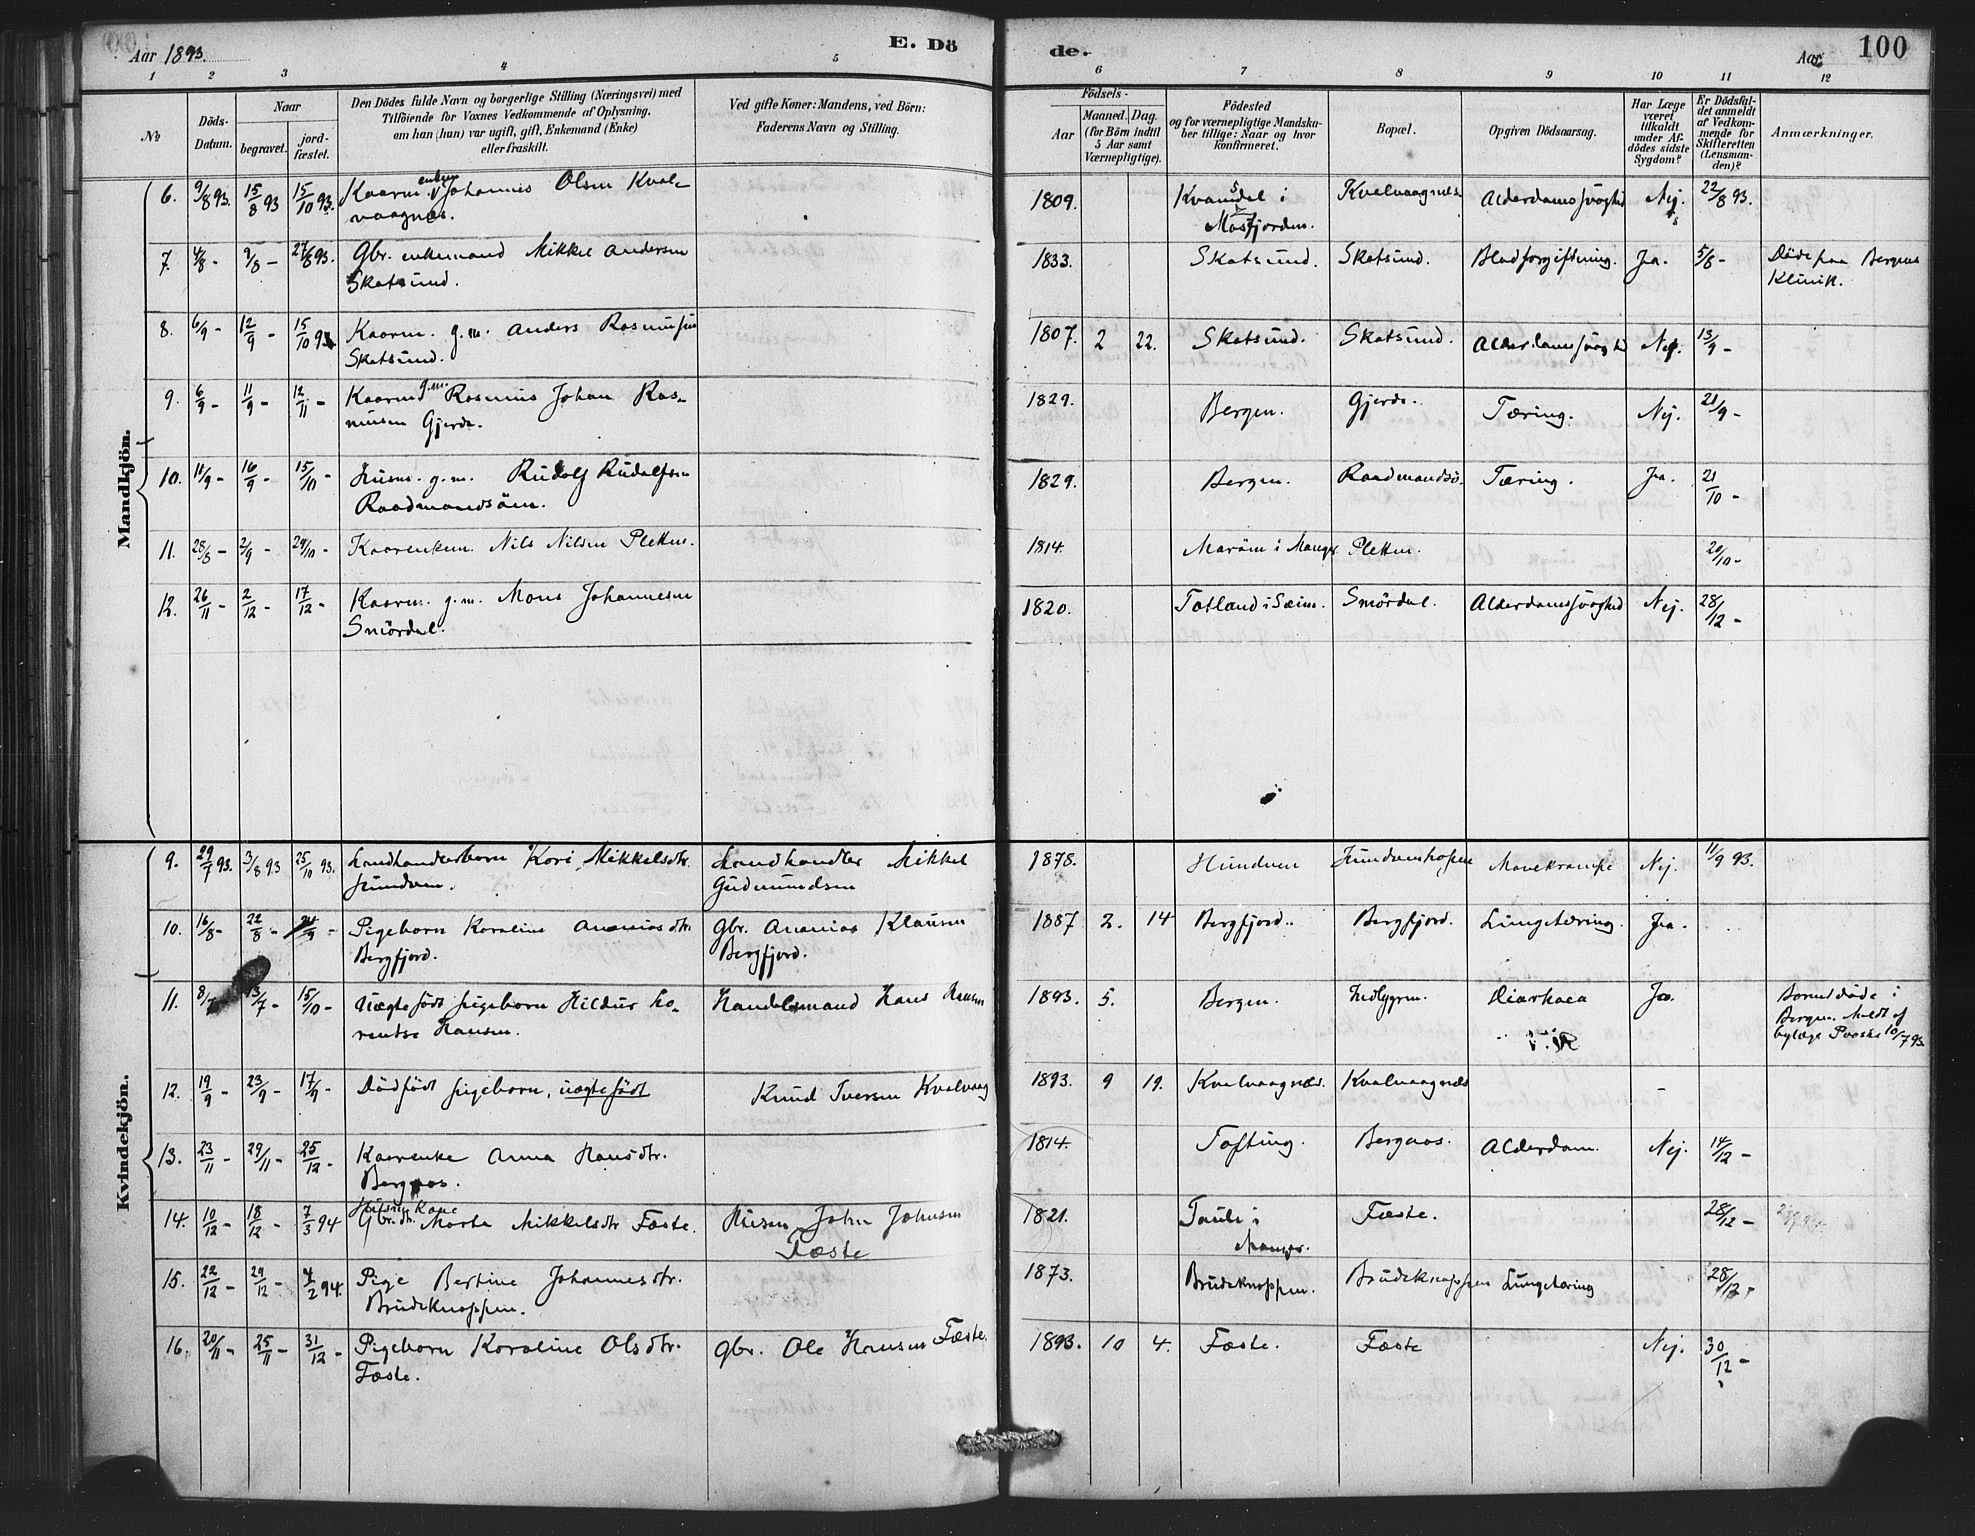 Aar 1893.
E. Dö
de.
Aar
100
1 2 3 4 5 6 7 8 9 10 11 12
No
Döds-
Datum.
Naar
begravet.
jord-
fæstet.
Den Dödes fulde Navn og borgerlige Stilling (Næringsvei) med
Tilföiende for Voxnes Vedkommende af Oplysning,
om han (hun) var ugift, gift, Enkemand (Enke)
eller fraskilt.
Ved gifte Koner: Mandens, ved Börn:
Faderens Navn og Stilling.
Födsels-
Aar
Maaned.
Dag.
(for Börn indtil
5 Aar samt
Værnepligtige).
Födested
og for værnepligtige Mandska-
ber tillige: Naar og hvor
konfirmeret.
Bopæl.
Opgiven Dödsaarsag.
Har Læge
været
tilkaldt
under Af-
dödes sidste
Sygdom?
Er Dödsfal-
det anmeldt
af Vedkom-
mende for
Skifteretten
(Lensman-
den)?
Anmærkninger.
Mandkjön.
6. 9/8 93. 15/8 93 15/10 93. Kaarm. enkem Johannes Olsen Kval-
vaagnæs.
1809. Kvamsdal i
Mosfjorden. Kvalvaagnæs Alderdomssvaghed Nej. 22/8 93.
7. 4/8 - 9/8 - 27/8 93. Gbr. enkemand Mikkel Andersen
Skatsund.
1833. Skatsund. Skatsund. Blodforgiftning. Ja. 5/8 - Döde paa Bergens
Klinik.
8. 6/9 - 12/9 - 15/10 93 Kaarm. g.m. Anders Rasmussen
Skatsund.
1807. 2 22. Skatsund. Skatsund. Alderdomssvaghed Nej. 13/9 -
9. 6/9 - 11/9 - 12/11 - Kaarm g.m. Rasmus Johan Ras-
musen Gjerde.
1829. Bergen. Gjerde. Tæring. Nej. 21/9 -
10. 11/9 - 16/9 - 15/10 - Husm. g.m. Rudolf Rudolfsen
Raadmandsöen.
1829. Bergen. Raadmandsö. Tæring. Ja. 21/10 -
11. 28/8 - 2/9 - 29/10 - Kaarenkem. Nils Nilsen Pletten.
1814. Maröen i Manger Pletten. 20/10 -
12. 26/11 - 2/12 - 17/12 - Kaarm. g.m. Mons Johannesen
Smördal.
1820. Totland i Sæim. Smördal. Alderdomssvaghed Nej. 28/12 -
Kvindekjön.
9. 29/7 93. 3/8 93 25/10 93. Landhandlerbarn Kari Mikkelsdtr.
Hundven.
Landhandler Mikkel
Gudmundsen
1878. Hundven Hundvenhopen Mavekrampe Nej. 11/9 93.
10. 16/8 - 22/8 - 24/9 - Pigebarn Karoline Ananiasdtr.
Bergfjord.
gbr. Ananias Klausen
Bergfjord.
1887 2. 14 Bergfjord. Bergfjord. Lungetæring. Ja.
11. 8/7 13/7 - 15/10 - Uægtefödt pigebarn Hildur Lo-
rentse Hansen.
Handelsmand Hans Hansen
1893. 5. Bergen. Indlyggen. Diarhæa Ja. Barnet döde i
Bergen. Meldt af
bylæge 10/7 93
12. 19/9 - 23/9 - 17/9 - Dödfödt pigebarn, uægtefödt
Knud Iversen Kvalvaag
1893. 9 19. Kvalvaagnæs. Kvalvaagnæs -
13. 23/11 - 29/11 - 25/12 - Kaarenke Anna Hansdtr.
Bergaas.
1814. Tofting. Bergaas. Alderdom. Nej. 14/12 -
14. 10/12 - 18/12 - 7/3 94 Husm Kone
Gbr. dtr. Marta Mikkelsdtr Fæste.
Husm John Johnsen
Fæste
1821. Taule i
Manger. Fæste. 28/12 -
15. 22/12 - 29/12 - 4/2 94. Pige Bertine Johannesdtr.
Brudeknappen.
1873. Brudeknappen. Brudeknappen Lungetæring 28/12
16. 20/11 - 25/11 - 31/12 - Pigebarn Karoline Olsdtr.
Fæste.
gbr. Ole Hansen Fæste.
1893. 10 4. Fæste. Fæste Nej. 30/12 -